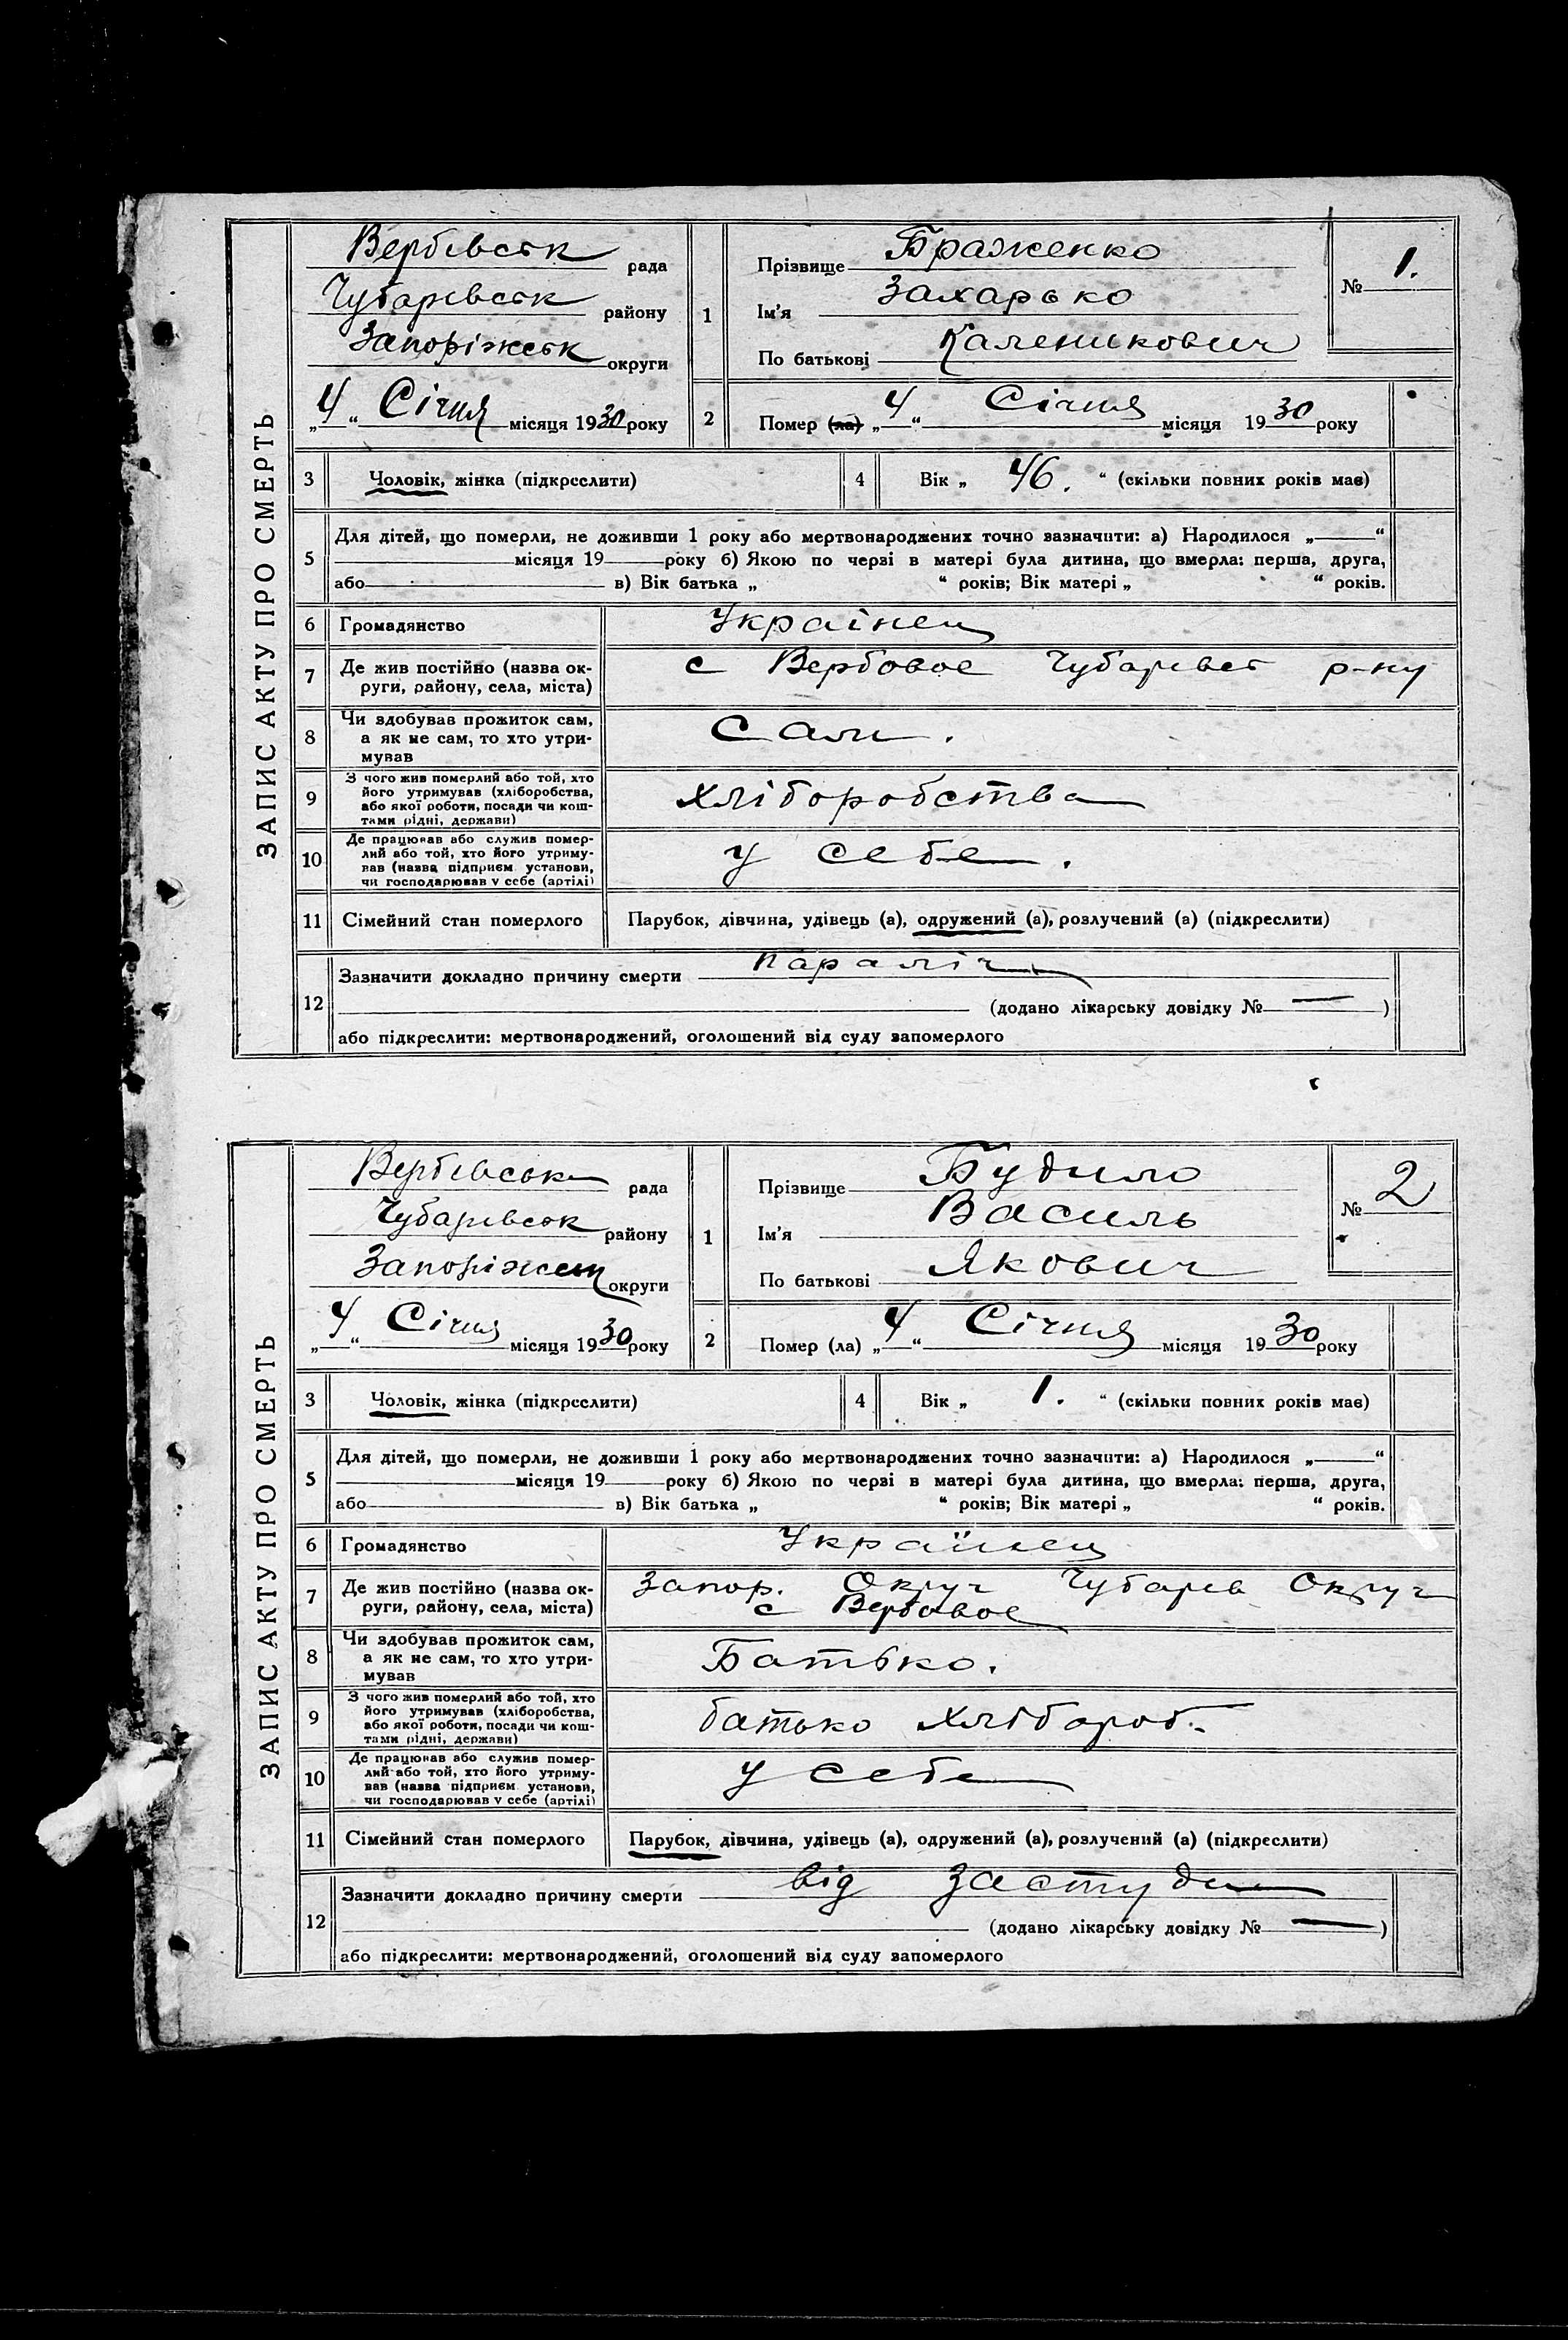 ЗАПИС АКТУ ПРО СМЕРТЬ
Вербівськ рада
Чубарівськ району
Запоріжськ округи
„4“ Січня місяця 1930 року
1
Прізвище Браженко
Ім'я Захарько
По батькові Каленикович
№ 1.
2
Помер (ла) „4“ Січня місяця 1930 року
3 Чоловік, жінка (підкреслити)
4 Вік „ 46. “ (скільки повних років має)
5
Для дітей, що померли, не доживши 1 року або мертвонароджених точно зазначити: а) Народилося „ “
місяця 19 року б) Якою по черзі в матері була дитина, що вмерла: перша, друга,
або в) Вік батька „ “ років; Вік матері „ “ років.
6 Громадянство Українец
7 Де жив постійно (назва ок-
руги, району, села, міста)
с Вербовое Чубаревст р-ну
8 Чи здобував прожиток сам,
а як не сам, то хто утри-
мував
Сам.
9 З чого жив померлий або той, хто
його утримував (хліборобства,
або якої роботи, посади чи кош-
тами рідні, держави)
хліборобства
10 Де працював або служив помер-
лий або той, хто його утриму-
вав (назва підприєм. установи,
чи господарював у себе (артілі)
у себе.
11 Сімейний стан померлого Парубок, дівчина, удівець (а), одружений (а), розлучений (а) (підкреслити)
12 Зазначити докладно причину смерти параліч
(додано лікарську довідку № — )
або підкреслити: мертвонароджений, оголошений від суду запомерлого
ЗАПИС АКТУ ПРО СМЕРТЬ
Вербівськ рада
Чубарівськ району
Запоріжськ округи
„4“ Січня місяця 1930 року
1
Прізвище Будило
Ім'я Василь
По батькові Якович
№ 2
2
Помер (ла) „4“ Січня місяця 1930 року
3 Чоловік, жінка (підкреслити)
4 Вік „ 1. “ (скільки повних років має)
5
Для дітей, що померли, не доживши 1 року або мертвонароджених точно зазначити: а) Народилося „ “
місяця 19 року б) Якою по черзі в матері була дитина, що вмерла: перша, друга,
або в) Вік батька „ “ років; Вік матері „ “ років.
6 Громадянство Українец
7 Де жив постійно (назва ок-
руги, району, села, міста)
Запор. Округ Чубарев Округ
с Вербовое
8 Чи здобував прожиток сам,
а як не сам, то хто утри-
мував
Батько.
9 З чого жив померлий або той, хто
його утримував (хліборобства,
або якої роботи, посади чи кош-
тами рідні, держави)
батько хлібороб.
10 Де працював або служив помер-
лий або той, хто його утриму-
вав (назва підприєм. установи,
чи господарював у себе (артілі)
у себе
11 Сімейний стан померлого Парубок, дівчина, удівець (а), одружений (а), розлучений (а) (підкреслити)
12 Зазначити докладно причину смерти від застуди
(додано лікарську довідку № — )
або підкреслити: мертвонароджений, оголошений від суду запомерлого